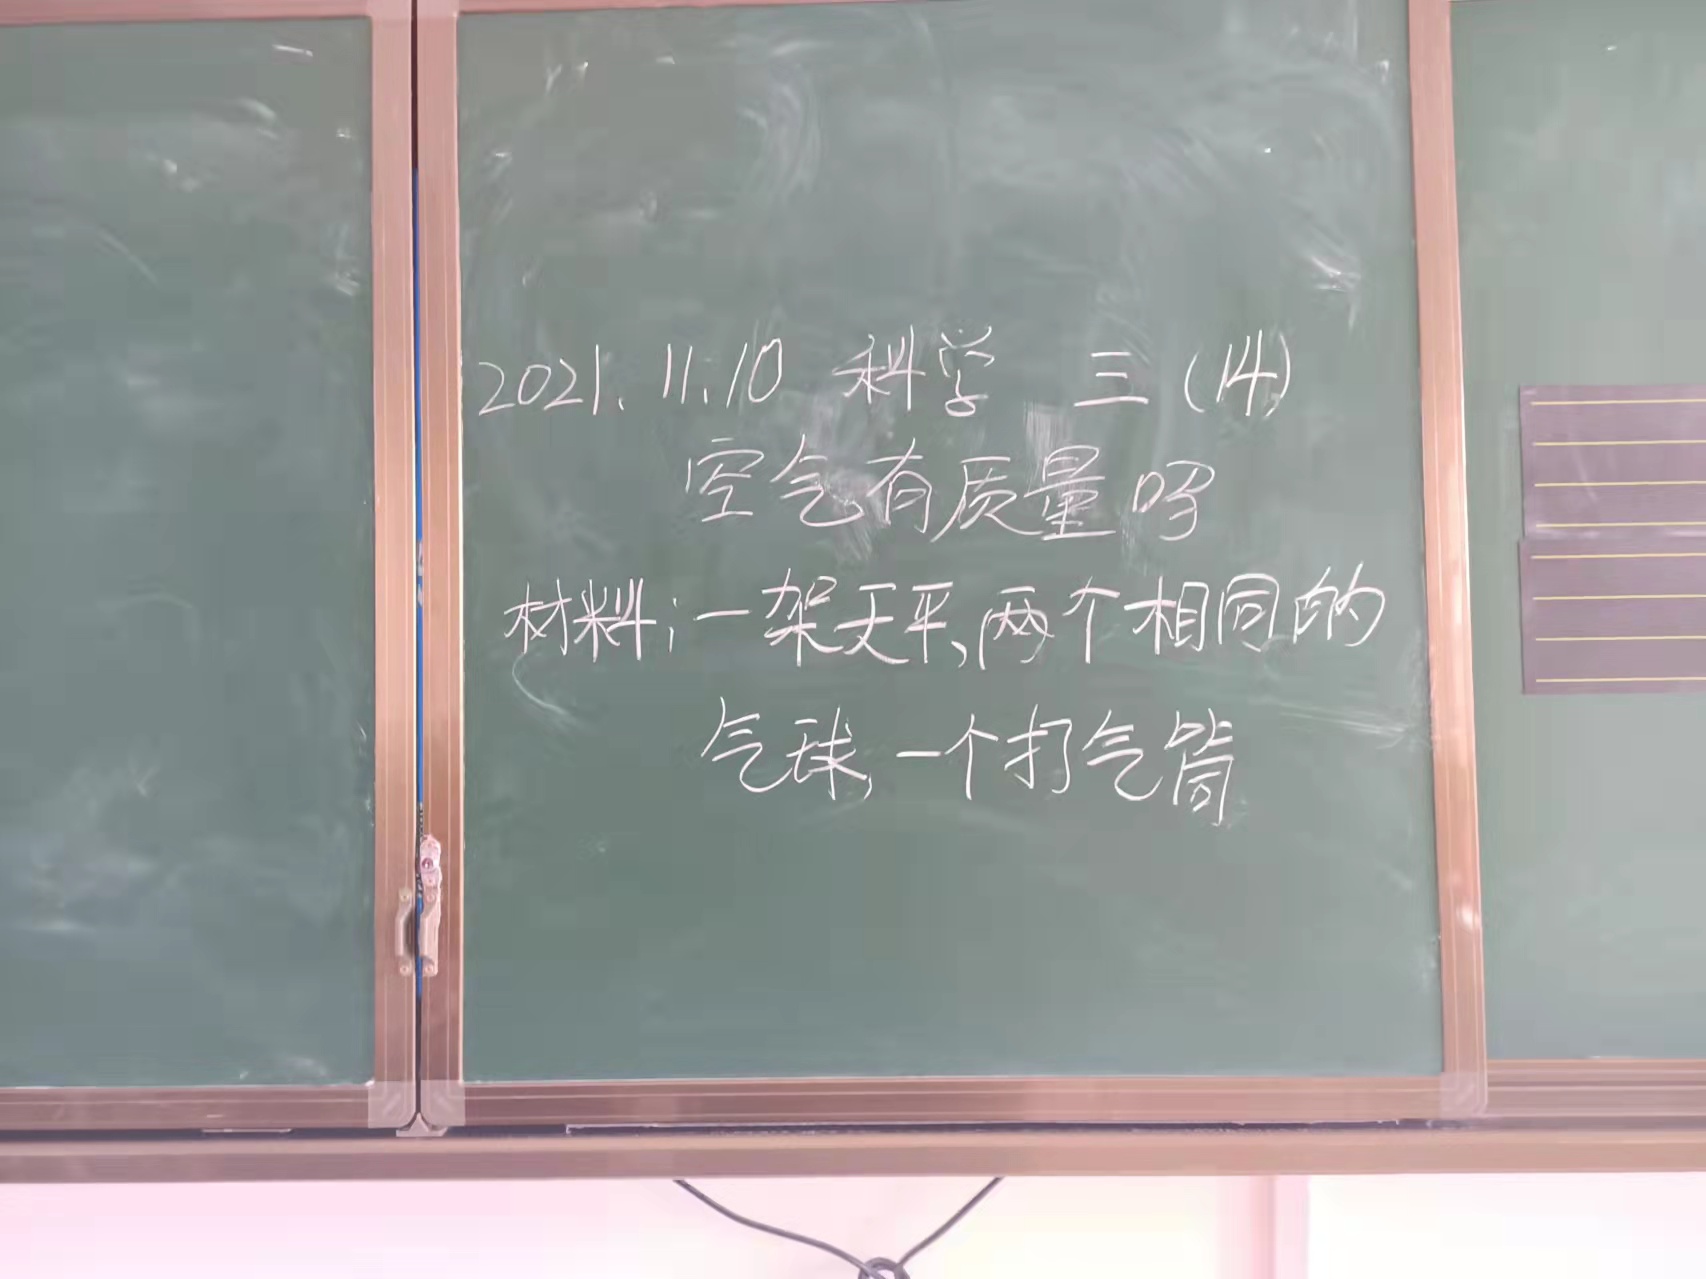 2021.11.10 科学 三(14)
空气有质量吗
材料:一架天平、两个相同的
气球,一个打气筒